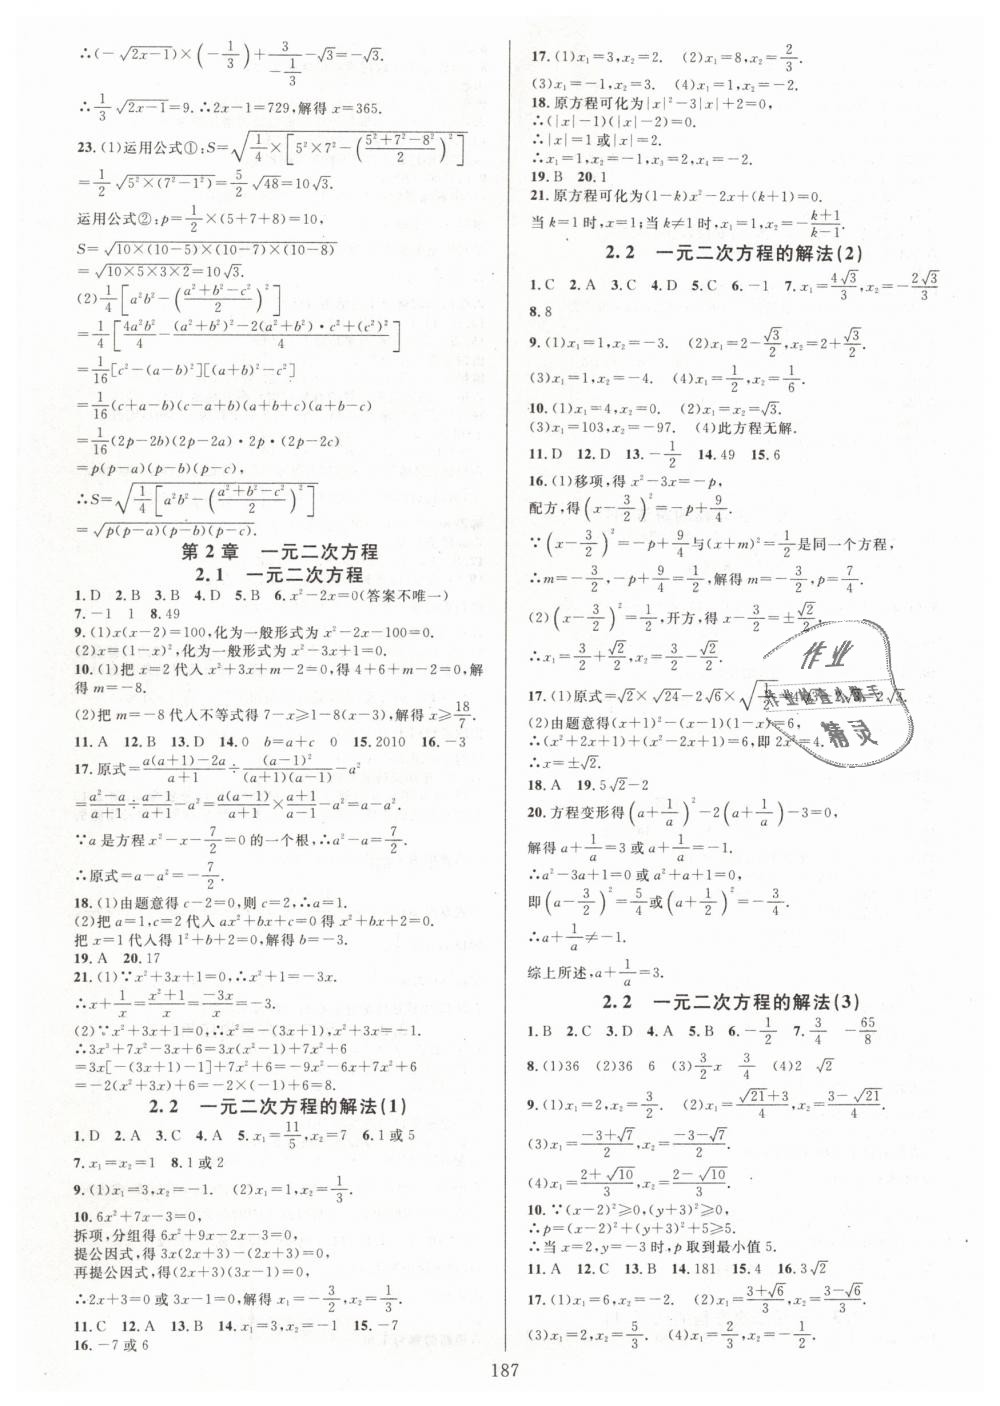 ∴(-√(2x-1))×(-1/3)+3/(-1/3)-√3=-√3.
∴1/3√(2x-1)=9.∴2x-1=729,解得 x=365.
23.(1)运用公式①:S=√(1/4×[5²×7²-((5²+7²-8²)/2)²])
=1/2√(5²×(7²-1²))=5/2√48=10√3.
运用公式②:p=1/2×(5+7+8)=10,
S=√(10×(10-5)×(10-7)×(10-8))
=√(10×5×3×2)=10√3.
(2)1/4[a²b²-((a²+b²-c²)/2)²]
=1/4[4a²b²/4-((a²+b²)²-2(a²+b²)·c²+(c²)²)/4]
=1/16[c²-(a-b)²][(a+b)²-c²]
=1/16(c+a-b)(c-a+b)(a+b+c)(a+b-c)
=1/16(2p-2b)(2p-2a)·2p·(2p-2c)
=p(p-a)(p-b)(p-c),
∴S=√(1/4[a²b²-((a²+b²-c²)/2)²])
=√(p(p-a)(p-b)(p-c)).
第2章 一元二次方程
2.1 一元二次方程
1.D 2.B 3.B 4.D 5.B 6.x²-2x=0(答案不唯一)
7.-1 1 8.49
9.(1)x(x-2)=100,化为一般形式为 x²-2x-100=0.
(2)x=(1-x)²,化为一般形式为 x²-3x+1=0.
10.(1)把 x=2 代入 x²+3x+m-2=0,得 4+6+m-2=0,解
得 m=-8.
(2)把 m=-8 代入不等式得 7-x≥1-8(x-3),解得 x≥18/7.
11.A 12.B 13.D 14.0 b=a+c 0 15.2010 16.-3
17.原式=(a(a+1)-2a)/(a+1)÷(a-1)²/((a+1)(a-1))-a²
=(a²-a)/(a+1)÷(a-1)/(a+1)-a²=a(a-1)/(a+1)×(a+1)/(a-1)-a²=a-a².
∵a 是方程 x²-x-7/2=0 的一个根,∴a²-a=7/2.
∴原式=a-a²=-7/2.
18.(1)由题意得 c-2=0,则 c=2,∴a=1.
(2)把 a=1,c=2 代入 ax²+bx+c=0 得 x²+bx+2=0.
把 x=1 代入得 1²+b+2=0,解得 b=-3.
19.A 20.17
21.(1)∵x²+3x+1=0,∴x²+1=-3x.
∴x+1/x=(x²+1)/x=-3x/x=-3.
(2)∵x²+3x+1=0,∴x²=-(3x+1),x²+3x=-1.
∴3x³+7x²-3x+6=3x(x²-1)+7x²+6
=3x[-(3x+1)-1]+7x²+6=-9x²-6x+7x²+6
=-2(x²+3x)+6=-2×(-1)+6=8.
2.2 一元二次方程的解法(1)
1.D 2.A 3.C 4.A 5.x₁=11/5,x₂=7 6.1 或 5
7.x₁=x₂=1 8.1 或 2
9.(1)x₁=3,x₂=-1. (2)x₁=1,x₂=1/3.
10.6x²+7x-3=0,
拆项,分组得 6x²+9x-2x-3=0,
提公因式,得 3x(2x+3)-(2x+3)=0,
再提公因式,得(2x+3)(3x-1)=0,
∴2x+3=0 或 3x-1=0,解得 x₁=-3/2,x₂=1/3.
11.C 12.A 13.B 14.x₁=3,x₂=-1 15.-7
16.-7 或 6
17.(1)x₁=3,x₂=2. (2)x₁=8,x₂=2/3.
(3)x₁=-1,x₂=1. (4)x₁=1,x₂=-2.
18.原方程可化为|x|²-3|x|+2=0,
∴(|x|-1)(|x|-2)=0.
∴|x|=1 或|x|=2.
∴x₁=1,x₂=-1,x₃=2,x₄=-2.
19.B 20.1
21.原方程可化为(1-k)x²-2x+(k+1)=0.
当 k=1 时,x=1;当 k≠1 时,x₁=1,x₂=-(k+1)/(k-1).
2.2 一元二次方程的解法(2)
1.C 2.A 3.C 4.D 5.C 6.-1 7.x₁=4√3/3,x₂=-2√3/3
8.8
9.(1)x₁=1,x₂=-3. (2)x₁=2-√3/2,x₂=2+√3/2.
(3)x₁=1,x₂=-4. (4)x₁=1/2,x₂=1/6.
10.(1)x₁=4,x₂=0. (2)x₁=x₂=√3.
(3)x₁=103,x₂=-97. (4)此方程无解.
11.D 12.D 13.-1/2 14.49 15.6
16.(1)移项,得 x²-3x=-p,
配方,得(x-3/2)²=-p+9/4.
∵(x-3/2)²=-p+9/4与(x+m)²=1/2是同一个方程,
∴m=-3/2,-p+9/4=1/2,解得 m=-3/2,p=7/4.
(2)(x-3/2)²=1/2,开方,得 x-3/2=±√2/2,
∴x₁=3/2+√2/2,x₂=3/2-√2/2.
17.(1)原式=√2×√24-2√6×√(1/2)
(2)由题意得(x²+2)-(x-1)(1-x)=6,
∴(x²+2x+1)+(x²-2x+1)=6,即 2x²=4.
∴x=±√2.
18.A 19.5√2-2
20.方程变形得(a+1/a)²-2(a+1/a)-3=0,
解得 a+1/a=3 或 a+1/a=-1.
∴a²-3a+1=0 或 a²+a+1=0,
即(a-3/2)²=5/4或(a+1/2)²=-3/4.
∴a+1/a≠-1.
综上所述,a+1/a=3.
2.2 一元二次方程的解法(3)
1.B 2.C 3.D 4.A 5.B 6.-1/2 7.3/4 -65/8
8.(1)36 (2)36 6 (3)3/2x 3/4 (4)2 √2
9.(1)x₁=2,x₂=3/2. (2)x₁=(√21+3)/4,x₂=(3-√21)/4.
(3)x₁=(-3+√7)/2,x₂=(-3-√7)/2.
(4)x₁=(2+√10)/3,x₂=(2-√10)/3.
10.∵(x-2)²≥0,(y+3)²≥0,
∴p=(x-2)²+(y+3)²+5≥5.
∴当 x=2,y=-3 时,p 取到最小值 5.
11.A 12.C 13.B 14.181 15.4 16.3√2
17.(1)x₁=6,x₂=-2. (2)x₁=(3+√6)/3,x₂=(3-√6)/3.
(3)x₁=2,x₂=5/3. (4)x₁=-4,x₂=2.
187
作业
作业检查小助手
精灵